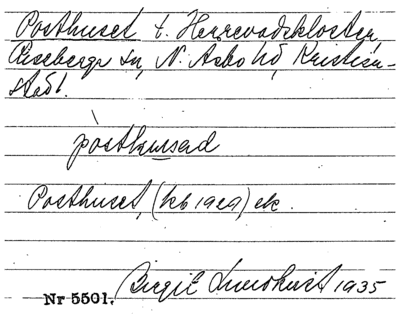 Posthuset t. Herrevadskloster,
Riseberga sn, N. Åsbo hd, Kristian-
stads l.
pòsthusəd
Posthuset, (kb 1929) ek.
Birgit Lundkvist 1935
Nr 5501.